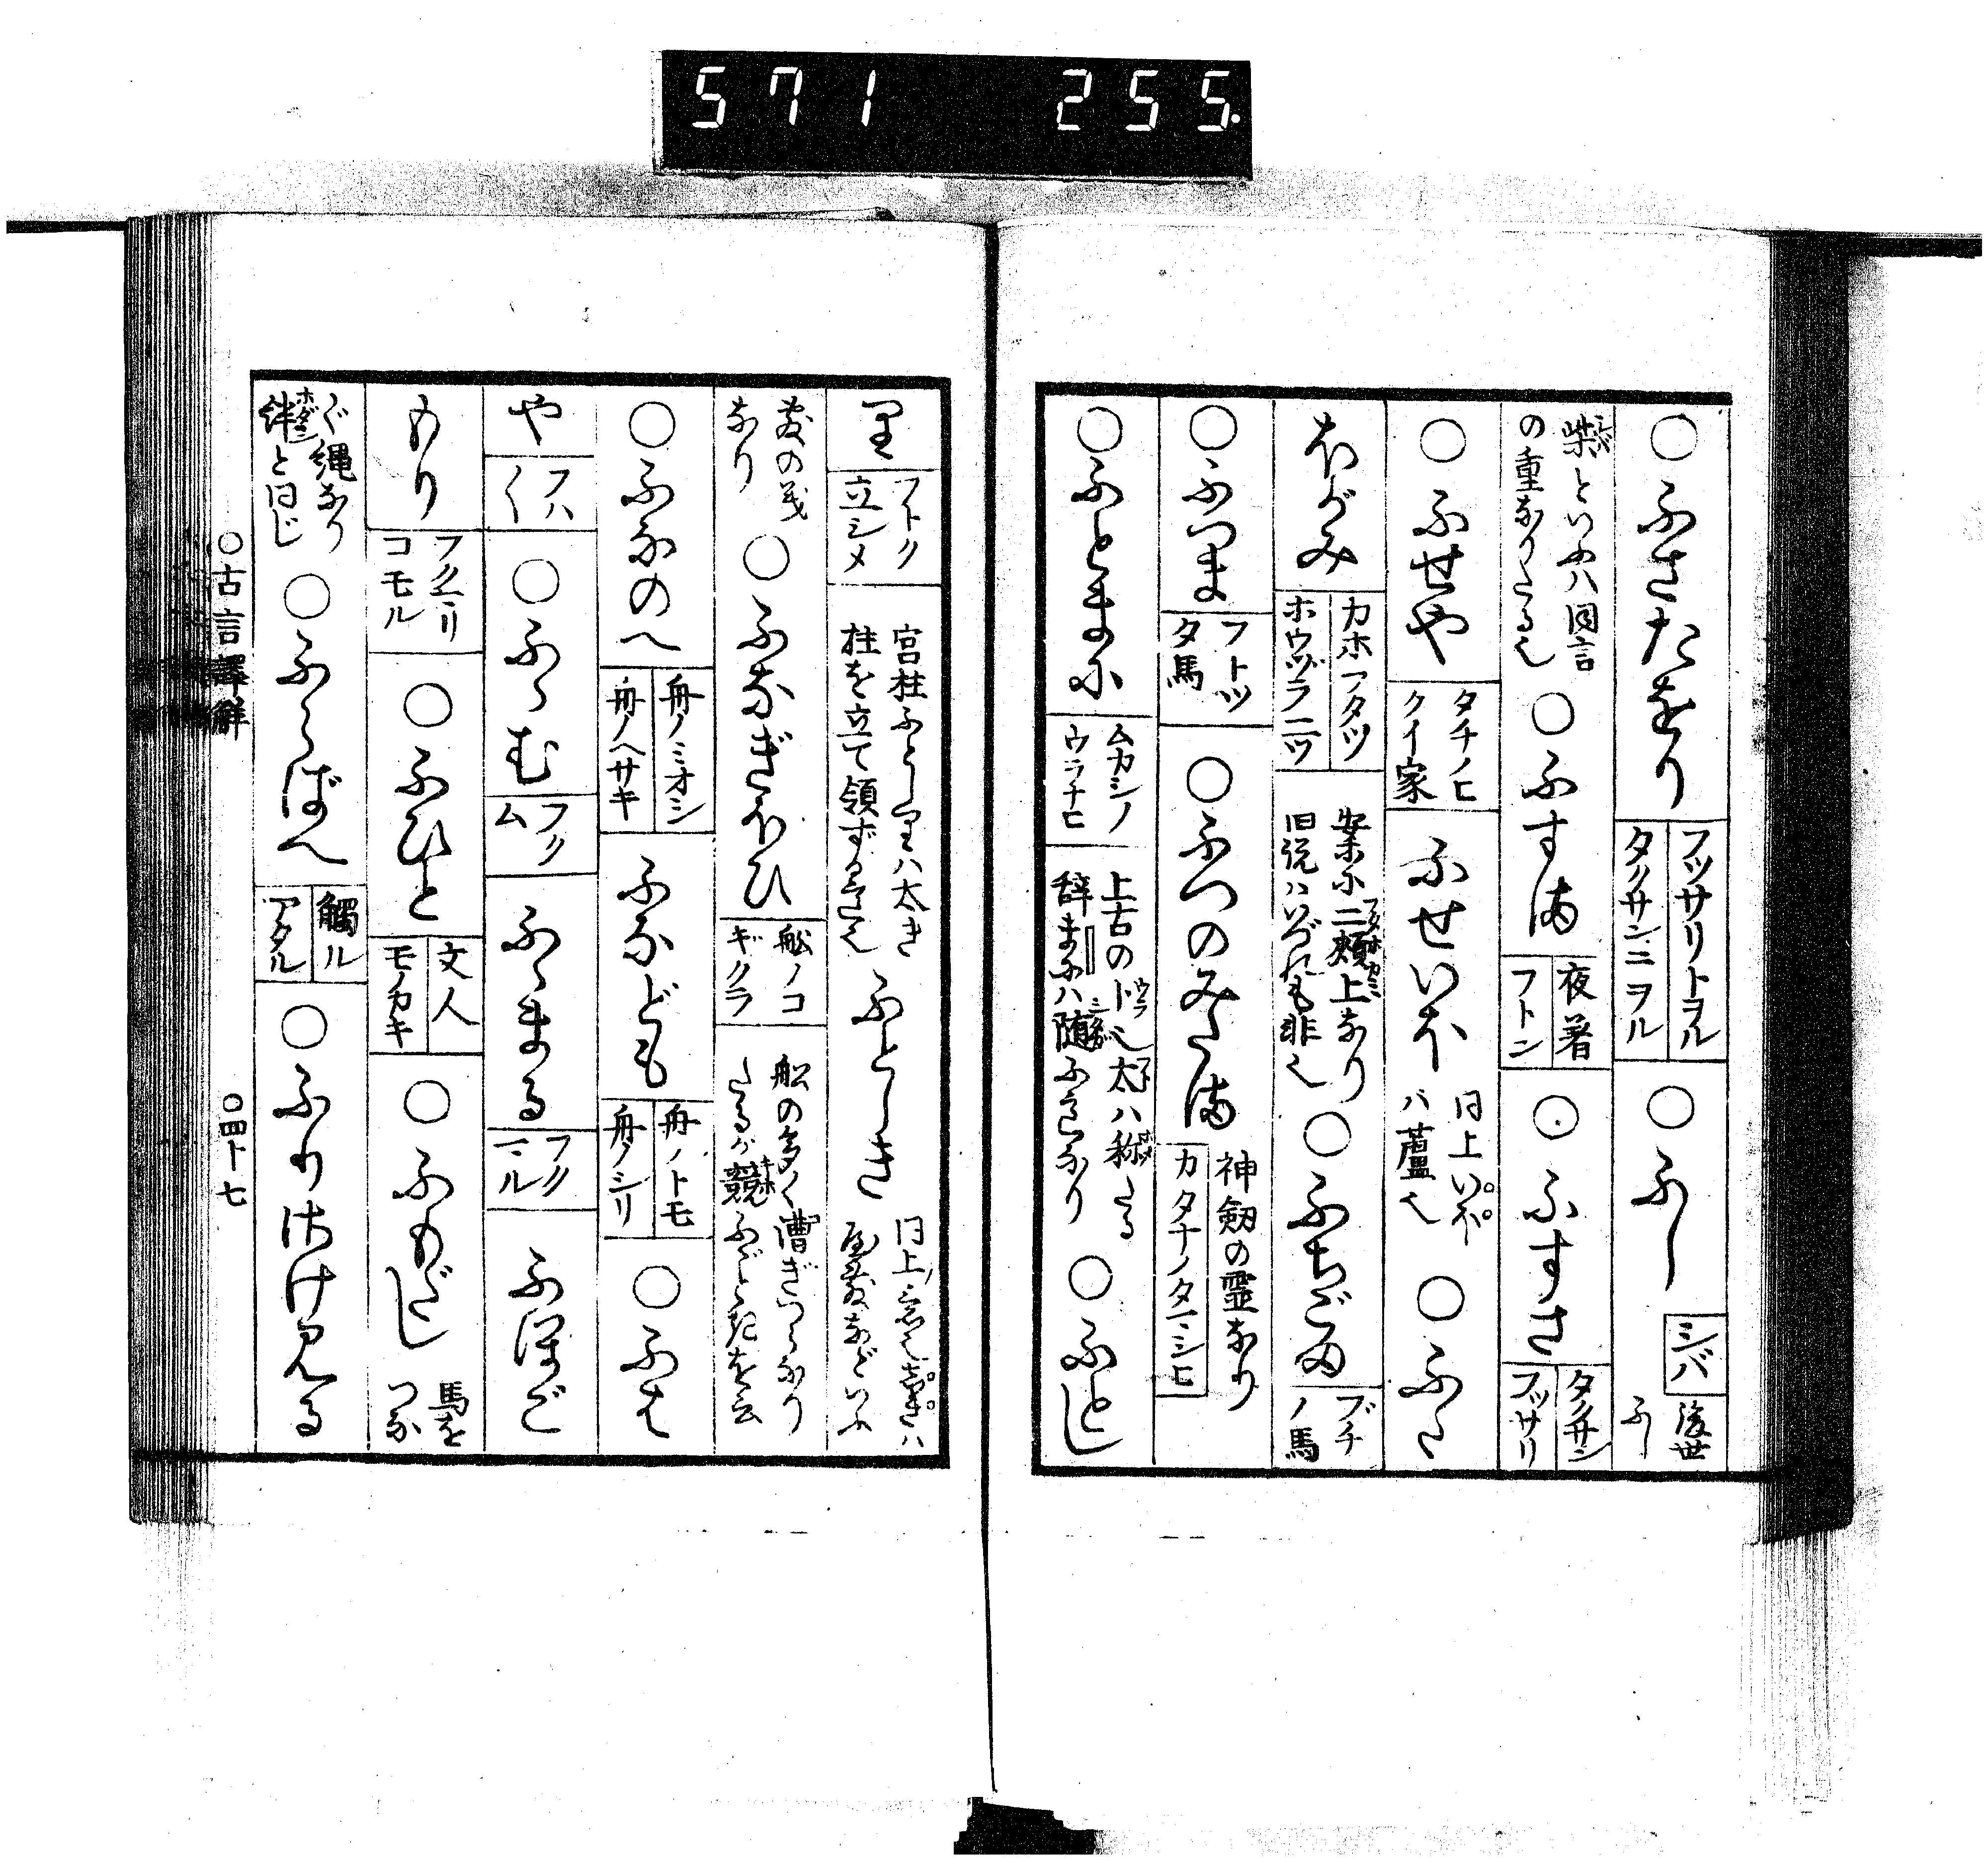 571 255.
○ふさたをり フッサリトヲル タクサンニヲル ○ふし シバ 後世ふし
柴といふハ同言の重なりたる也 ○ふすま 夜着 フトン ○ふすさ タクサン フッサリ
○ふせや タチノヒクイ家 ふせいほ 同上いほハ蘆也 ○ふた
ほがみ カホフタツ ホウヅラ二ツ 案に二頬上なり旧説ハいづれも非也 ○ふちごま ブチノ馬
○ふつま フトツタ馬 ○ふつのみたま 神剱の霊なり カタナノタマシヒ
○ふとまに ムカシノウラナヒ 上古の卜也太ハ称たる辞まにハ随ふ意なり ○ふとし
里 フトク立シメ 宮柱ふとしりハ太き柱を立て領ずる意也 ふとしき 同上ノ意也しきハ
敷の義なり ○ふなぎほひ 舩ノコギクラ 舩の多く漕ぎつらなりたるが競ふごときを云
○ふなのへ 舟ノミオシ 舟ノヘサキ ふなども 舟ノトモ 舟ノシリ ○ふは
や フハ〱 ○ふゝむ フクム ふゝまる フクマル ふほご
もり フクマリコモル ○ふひと 文人 モノカキ ○ふもだし 馬をつな
ぐ縄なり絆と同じ ○ふらばへ 觸ル アタル ○ふりさけ見る
○古言譯解 ○四十七